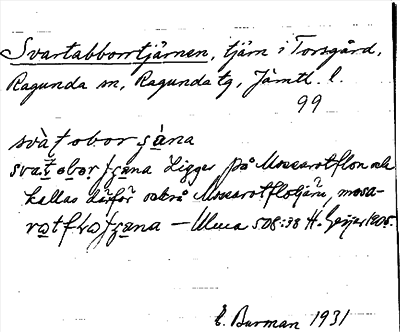 Svartabborrtjärnen, tjärn i Torsgård,
Ragunda sn, Ragunda tg, Jämtl. l.
99
Ligger på Mossarotflon och
kallas därför också Mossarotflotjärn, mosa-
— Ulma 508:38 H. Geijer 1905.
E. Burman 1931